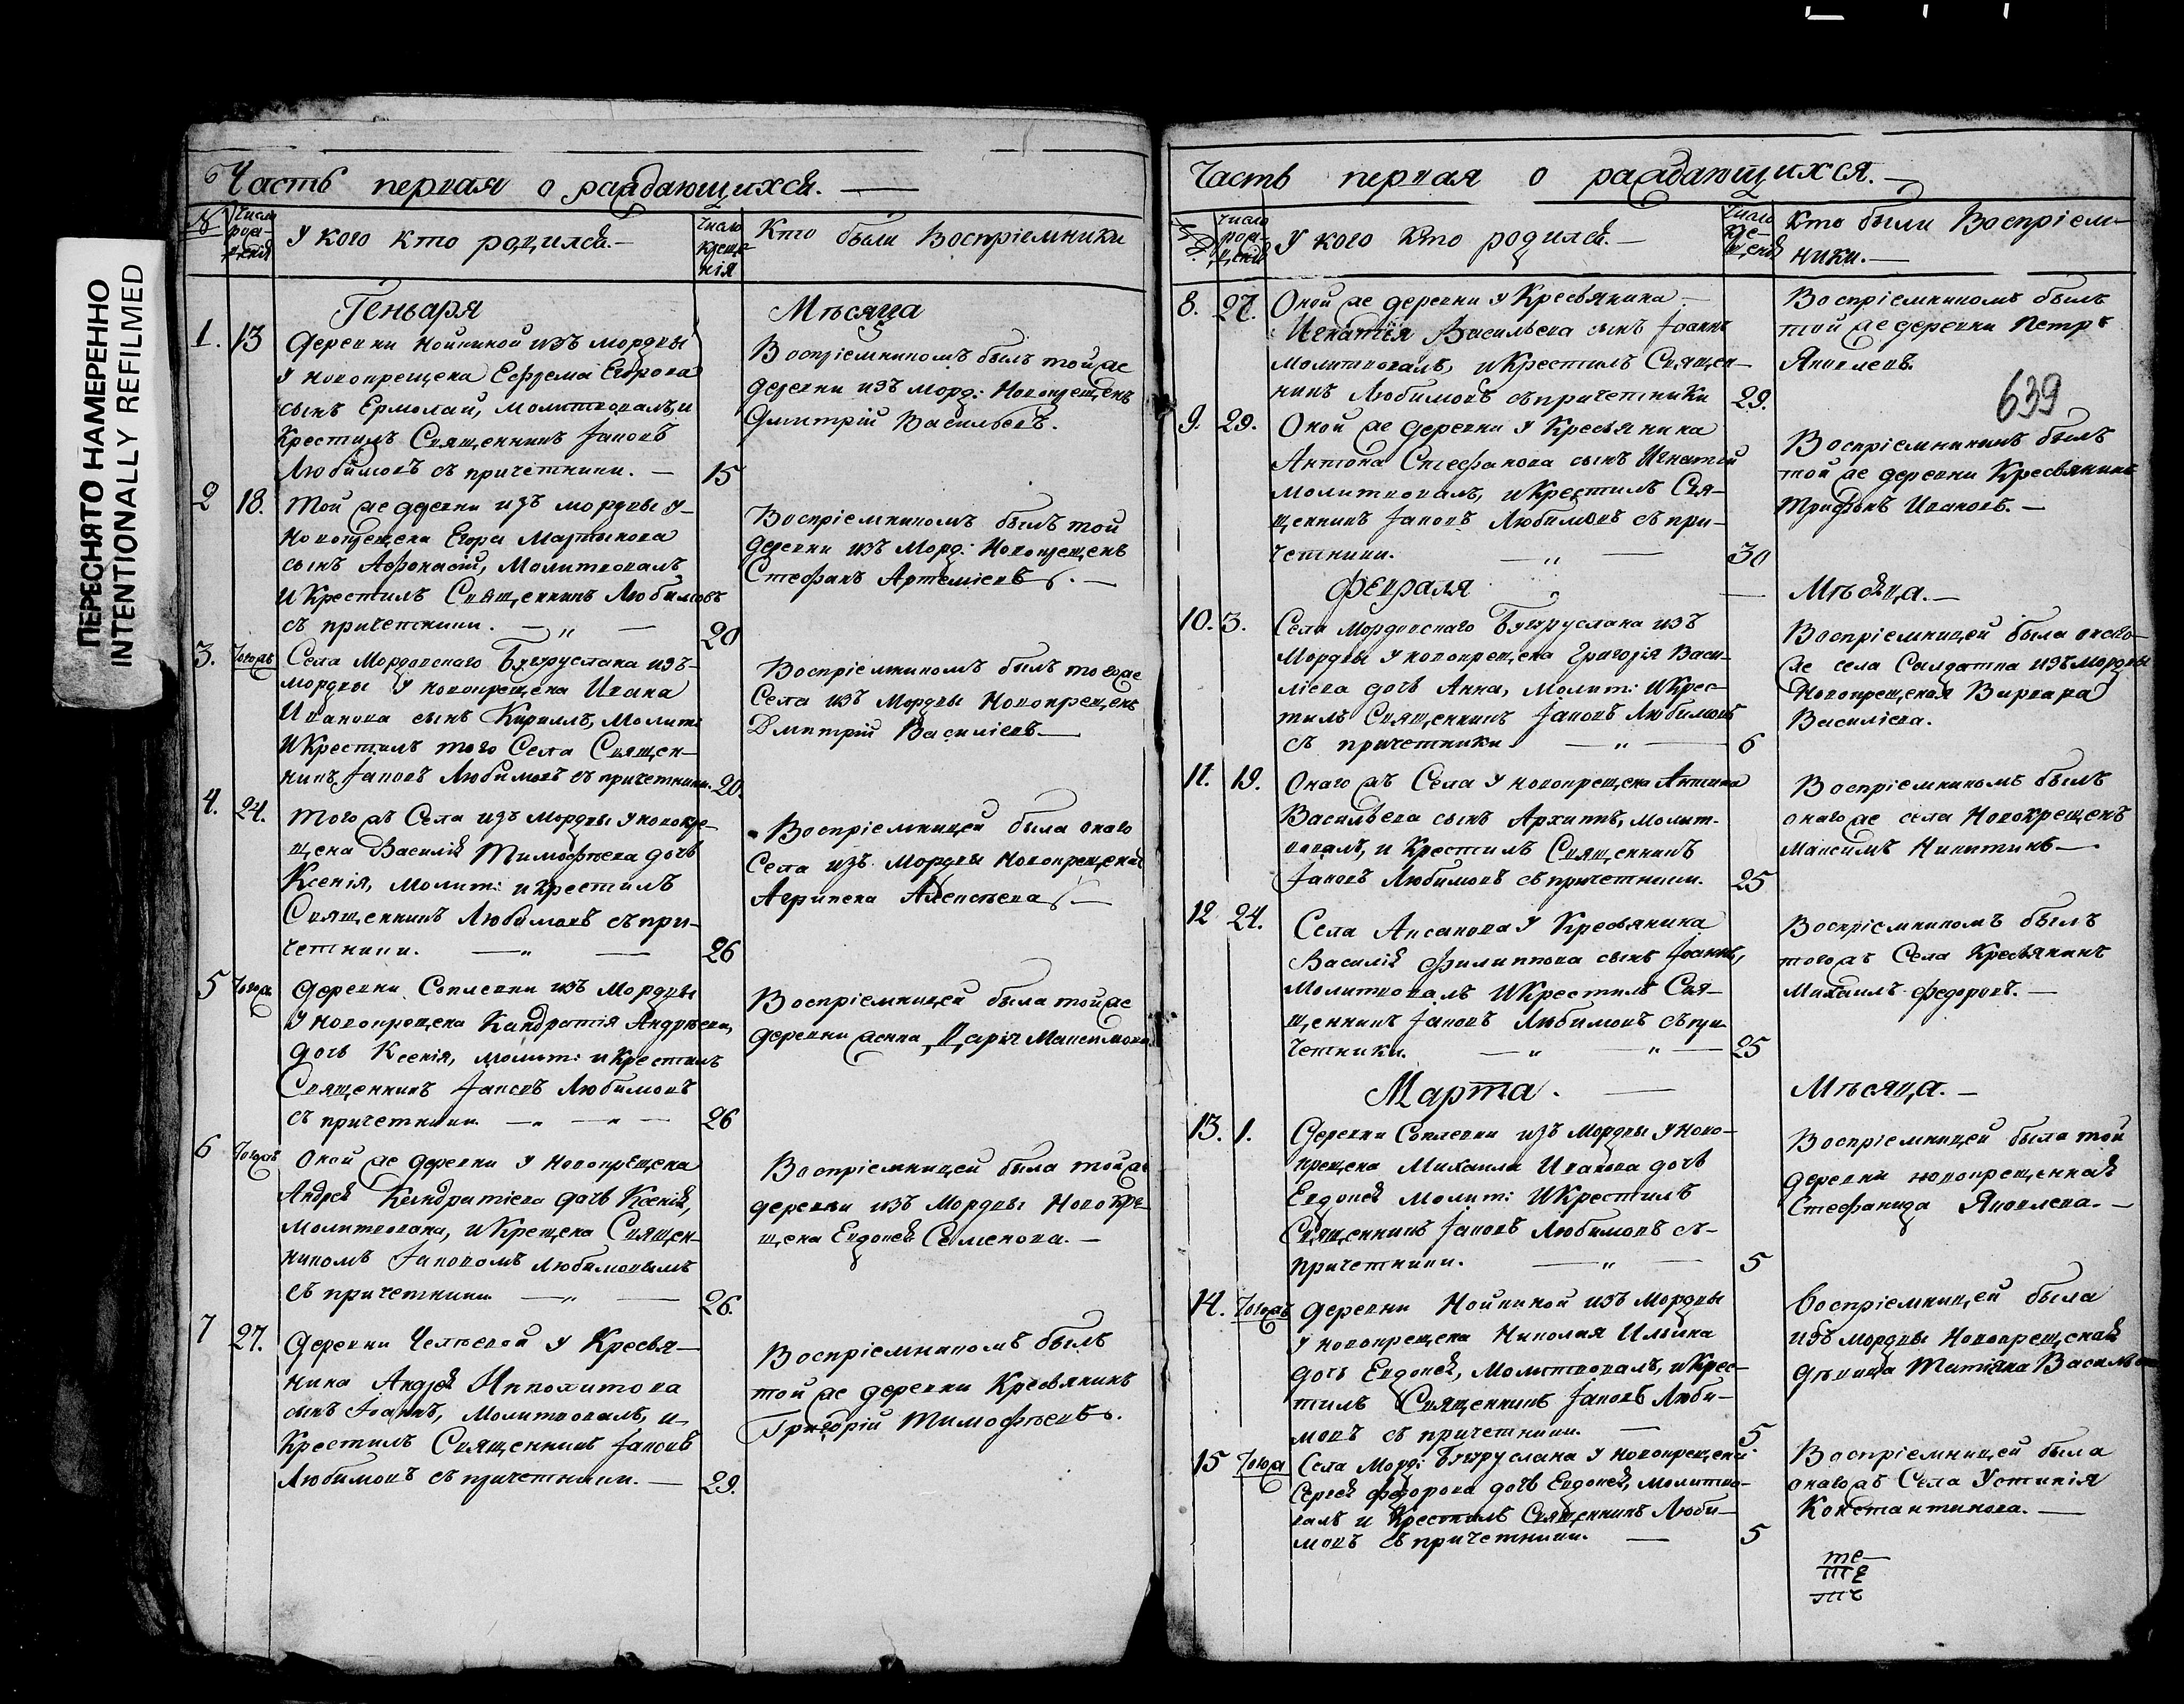 ПЕРЕСНЯТО НАМЕРЕННО
INTENTIONALLY REFILMED
Часть первая о раждающихся.
№
Число рождения
У кого кто родился.
Число крещенія
Кто были Воспріемники
Геньваря
Мѣсяца
1. 13
Деревни Нойкиной изъ мордвы
у новокрещена Ефрема Егорова
сынъ Ермолай, молитвовалъ, и
Крестилъ Священникъ Іаковъ
Любимовъ съ причетники. — 15
Воспріемникомъ былъ той же
деревни изъ Морд: Новокрещенъ
Дмитрій Васильевъ.
2 18.
Той же деревни изъ мордвы у
Новокрещена Егора Мартынова
сынъ Афонасій, Молитвовалъ
и Крестилъ Священникъ Любимовъ
съ причетники. — „ — 20
Воспріемникомъ былъ той
деревни изъ Морд: Новокрещенъ
Стефанъ Артеміевъ. —
3. Тогожъ
Села Мордовскаго Бугуруслана изъ
мордвы у новокрещена Ивана
Иванова сынъ Кириллъ, молит:
и Крестилъ того Села Священ-
никъ Іаковъ Любимовъ съ причетники. 20.
Воспріемникомъ былъ тогоже
Села изъ Мордвы Новокрещенъ
Дмитрій Василіевъ. —
4. 24.
Тогожъ Села изъ мордвы у новокре-
щена Василія Тимофѣева дочь
Ксенія, молит: и крестилъ
Священникъ Любимовъ съ при-
четники. — „ — 26
Воспріемницей была онаго
Села изъ Мордвы Новокрещеная
Агрипена Алексѣева. —
5 Тогож
Деревни Соплевки изъ Мордвы
у новокрещена Кандратія Андрѣева,
дочь Ксенія, молит: и Крестилъ
Священникъ Іаковъ Любимовъ
съ причетники. — „ — „ — 26
Воспріемницей была той же
деревни женка Дарія Максимова
6 Тогожъ
Оной же деревни у Новокрещена
Андрея Кандратіева дочь Ксенія,
молитвована, и Крещена Священ-
никомъ Іаковомъ Любимовымъ
съ причетники — „ — 26.
Воспріемницей была той же
деревни изъ Мордвы Новокре-
щена Евдокея Семенова. —
7 27.
Деревни Челѣевой у Кресья-
нина Андрея Ипполитова
сынъ Іоаннъ, Молитвовалъ, и
Крестилъ Священникъ Іаковъ
Любимовъ съ причетники. — 29.
Воспріемникомъ былъ
той же деревни Кресьянинъ
Григорій Тимофѣевъ.
Часть первая о раждающихся. —
№
Число рожденія
У кого Кто родился. —
Число крещенія
Кто были Воспріем-
ники. —
8. 27.
Оной же деревни у Кресьянина
Игнатія Васильева сынъ Іоаннъ
молитвовалъ, и Крестилъ Священ-
никъ Любимовъ съ причетники 29.
Воспріемникомъ былъ
той же деревни Петръ
Яковлевъ.
639
9. 29.
Оной же деревни у Кресьянина
Антона Стефанова сынъ Игнатій
молитвовалъ, и Крестилъ Свя-
щенникъ Іаковъ Любимовъ съ при-
четники. — „ — 30
Воспріемникомъ былъ
той же деревни Кресьянинъ
Трифонъ Ивановъ. —
Февраля
Мѣсяца. —
10. 3.
Села Мордовскаго Бугуруслана изъ
Мордвы у новокрещена Григорія Васи-
ліева дочь Анна, молит: и Крес-
тилъ Священникъ Іаковъ Любимовъ
съ причетники — „ — 6
Воспріемницей была онаго-
же села Солдатка изъ мордвы
Новокрещеная Варвара
Василіева.
11. 19.
Онаго жъ Села у новокрещена Антипа
Васильева сынъ Архипъ, молит-
вовалъ, и Крестилъ Священникъ
Іаковъ Любимовъ съ причетники. 25
Воспріемникомъ былъ
онаго же села Новокрещенъ
Максимъ Никитинъ —
12 24.
Села Аксакова у Кресьянина
Василія Филиппова сынъ Іоаннъ,
Молитвовалъ и Крестилъ Свя-
щенникъ Іаковъ Любимовъ съ при-
четники. — „ — „ — 25
Воспріемникомъ былъ
тогожъ Села Кресьянинъ
Михаилъ Федоровъ. —
Марта. —
Мѣсяца. —
13. 1.
Деревни Соплевки изъ Мордвы у Ново-
крещена Михаила Иванова дочь
Евдокея Молит: и Крестилъ
Священникъ Іаковъ Любимовъ съ-
причетники. — „ — 5
Воспріемницей была той
деревни новокрещенная
Стефанида Яковлева. —
14. Тогожъ
деревни Нойкиной изъ Мордвы
у новокрещена Николая Ильина
дочь Евдокея, Молитвовалъ, и Крес-
тилъ Священникъ Іаковъ Люби-
мовъ съ причетники. — 5.
Воспріемницей была
изъ мордвы Новокрещеная
дѣвица Татіяна Васильева
15 Тогож
Села Морд: Бугуруслана у Новокрещена
Сергея Федорова дочь Евдокея, Молитво-
валъ и Крестилъ Священникъ Люби-
мовъ съ причетники. — 5
Воспріемницей была
онагожъ Села Устинія
Константинова. —